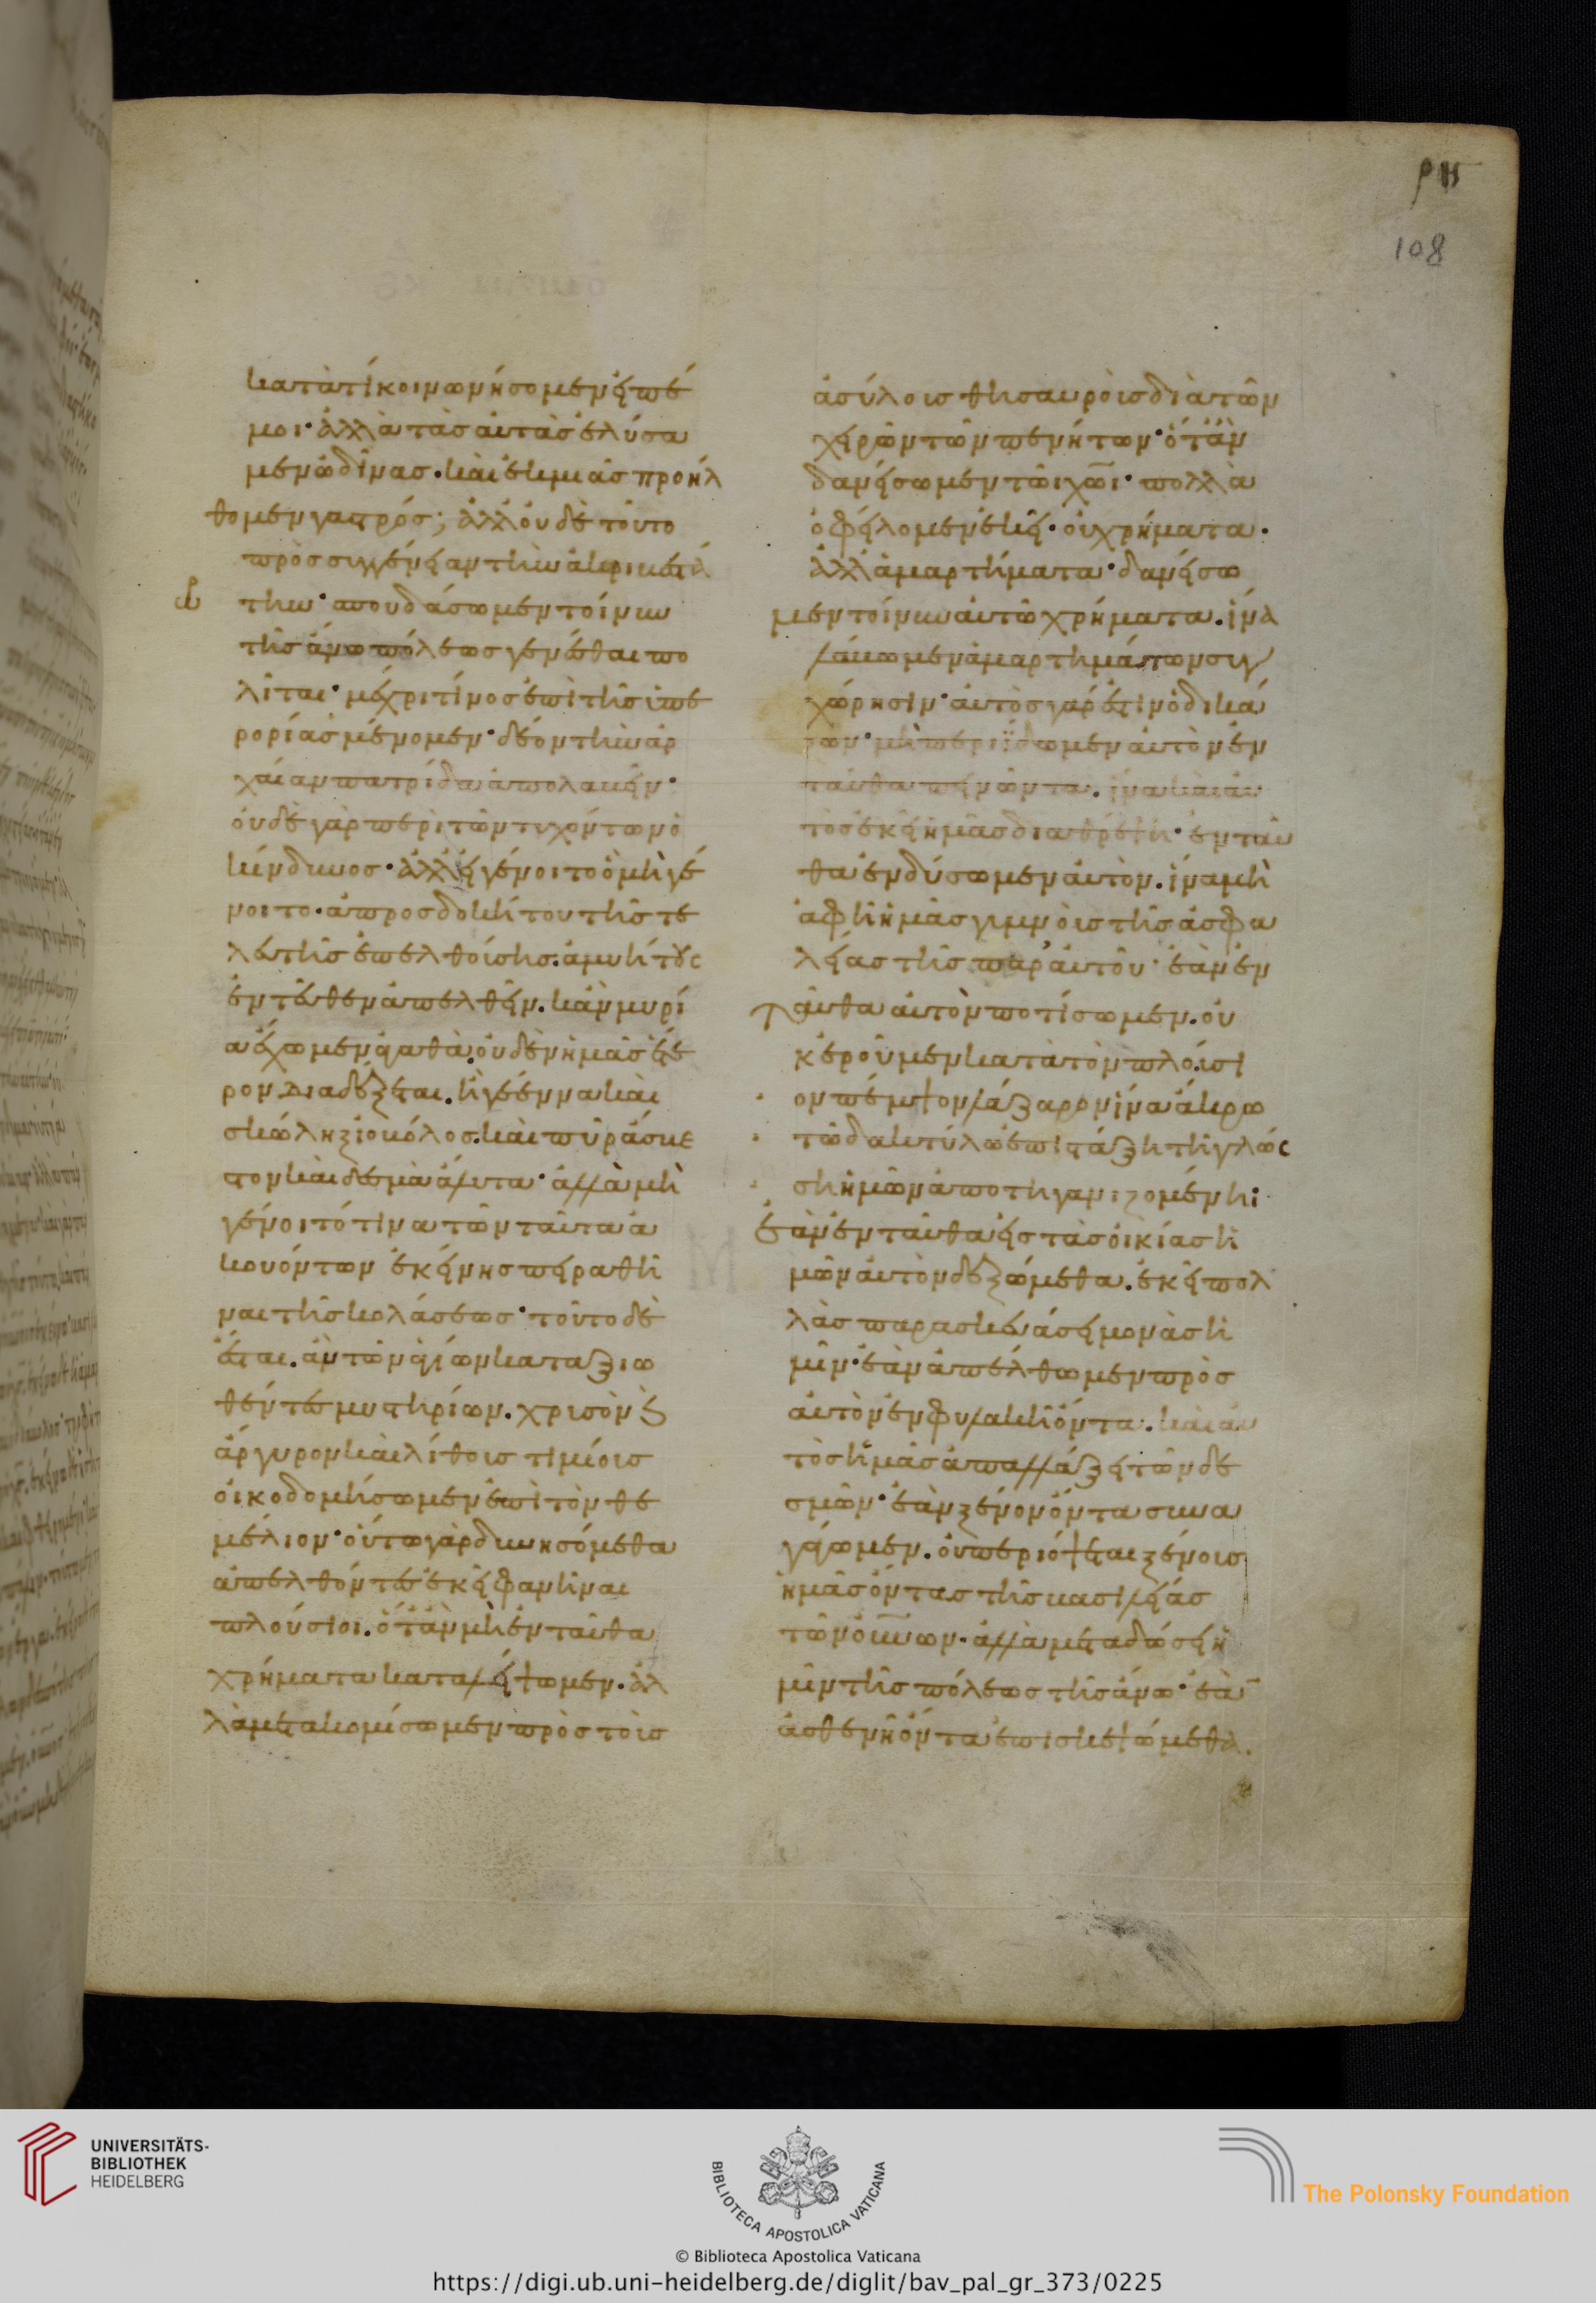 ρη
108
κατὰ τί κοινωνήσομεν εἰπέ
μοι· ἀλλὰ τὰς αὐτὰς ἐλύσα
μεν ὠδῖνας. καὶ ἐκ μιᾶς προήλ
θομεν γαστρός; ἀλλ' οὐδὲ τοῦτο
πρὸς συγγένειαν τὴν ἀκριβεστά
την· σπουδάσωμεν τοίνυν
τῆς ἄνω πόλεως γενέσθαι πο
λῖται· μέχρι τίνος ἐπὶ τῆς ὑπε
ρορίας μένομεν· δέον τὴν ἀρ
χαίαν πατρίδα ἀπολαβεῖν·
οὐδὲ γὰρ περὶ τῶν τυχόντων ὁ
κίνδυνος· ἀλλ' εἰ γένοιτο ὃ μὴ γέ
νοιτο. ἀπροσδοκήτου τῆς τε
λευτῆς ἐπελθούσης. ἀμυήτους
ἐντεῦθεν ἀπελθεῖν. κἂν μυρί
α ἔχωμεν ἀγαθὰ. οὐδὲν ἡμᾶς ἕτε
ρον διαδέξεται. ἢ γέεννα καὶ
σκώληξ ἰοβόλος. καὶ πῦρ ἄσβε
στον καὶ δεσμὰ ἄλυτα· ἀλλὰ μὴ
γένοιτό τινα τῶν ταῦτα ἀ
κουόντων ἐκείνης πειραθῆ
ναι τῆς κολάσεως· τοῦτο δὲ
ἔσται. ἂν τῶν ἁγίων καταξιω
θέντες μυστηρίων. χρυσὸν καὶ
ἄργυρον καὶ λίθους τιμίους
οἰκοδομήσωμεν ἐπὶ τὸν θε
μέλιον· οὕτω γὰρ δυνησόμεθα
ἀπελθόντες ἐκεῖ φανῆναι
πλούσιοι. ὅταν μὴ ἐνταῦθα
χρήματα καταλείψωμεν. ἀλ
λὰ μετακομίσωμεν πρὸς τοὺς
ἀσύλους θησαυροὺς διὰ τῶν
χειρῶν τῶν πενήτων· ὅταν
δανείσωμεν τῶι χῶι· πολλὰ
ὀφείλομεν ἐκεῖ. οὐ χρήματα.
ἀλλ' ἁμαρτήματα· δανείσω
μεν τοίνυν αὐτῶ χρήματα. ἵνα
λάβωμεν ἁμαρτημάτων συγ
χώρησιν· αὐτὸς γάρ ἐστιν ὁ δικά
ζων· μὴ περιΐδωμεν αὐτὸν ἐν
ταῦθα πεινῶντα. ἵνα καὶ αὐ
τὸς ἐκεῖ ἡμᾶς διαθρέψη· ἐνταῦ
θα ἐνδύσωμεν αὐτὸν. ἵνα μὴ
ἀφῆ ἡμᾶς γυμνοὺς τῆς ἀσφα
λείας τῆς παρ' αὐτοῦ· ἐὰν ἐν
ταῦθα αὐτὸν ποτίσωμεν. οὐκ
ἐροῦμεν κατὰ τὸν πλούσι
ον πέμψον λάζαρον ἵνα ἄκρω
τῶ δακτύλω ἐπιστάξη τῆ γλώσ
ση ἡμῶν ἀποτηγανιζομένη·
ἐὰν ἐνταῦθα εἰς τὰς οἰκίας ἡ
μῶν αὐτὸν δεξώμεθα. ἐκεῖ πολ
λὰς παρασκευάσει μονὰς ἡ
μῖν· ἐὰν ἀπέλθωμεν πρὸς
αὐτὸν ἐν φυλακῆ ὄντα. καὶ αὐ
τὸς ἡμᾶς ἀπαλλάξει τῶν δε
σμῶν· ἐὰν ξένον ὄντα συνα
γάγωμεν. οὐ περιόψεται ξένους
ἡμᾶς ὄντας τῆς βασιλείας
τῶν οὐνων. ἀλλὰ μεταδώσει ἡ
μῖν τῆς πόλεως τῆς ἄνω· ἐὰν
ἀσθενῆ ὄντα ἐπισκεψώμεθα.
UNIVERSITÄTS-
BIBLIOTHEK
HEIDELBERG
BIBLIOTECA APOSTOLICA VATICANA
The Polonsky Foundation
© Biblioteca Apostolica Vaticana
https://digi.ub.uni-heidelberg.de/diglit/bav_pal_gr_373/0225